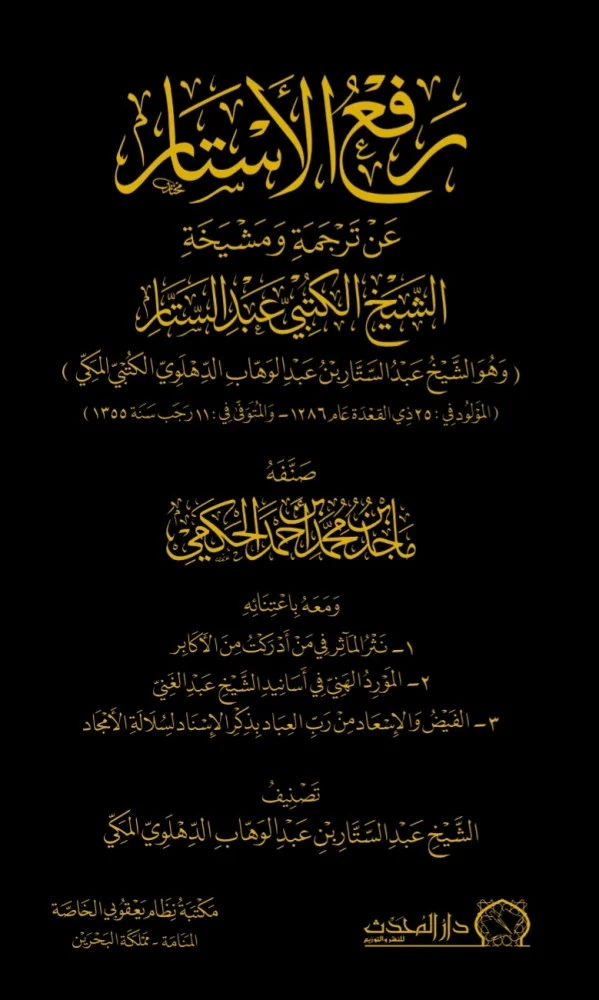 رَفْعُ الأَسْتَارِ
عَنْ تَرْجَمَةِ وَمَشْيَخَةِ
الشَّيْخِ الكُتُبِيِّ عَبْدِ السَّتَّارِ
( وَهُوَ الشَّيْخُ عَبْدُ السَّتَّارِ بْنُ عَبْدِ الوَهَّابِ الدِّهْلَوِيّ الكُتُبِيّ المَكِّي )
(المَوْلُودُ فِي : ٢٥ ذِي القَعْدَة عَام ١٢٨٦ - وَالمُتَوَفَّىٰ فِي : ١١ رَجَب سَنَة ١٣٥٥ )
صَنَّفَهُ
مَاجِدُ بْنُ مُحَمَّدِ بْنِ أَحْمَدَ الحَكَمِيّ
وَمَعَهُ بِاعْتِنَائِهِ
١- نَثْرُ المَآثِرِ فِي مَنْ أَدْرَكْتُ مِنَ الأَكَابِر
٢- المَوْرِدُ الهَنِيّ فِي أَسَانِيدِ الشَّيْخِ عَبْدِ الغَنِيّ
٣- الفَيْضُ وَالإِسْعَاد مِنْ رَبِّ العِبَاد بِذِكْرِ الإِسْنَاد لِسُلَالَةِ الأَمْجَاد
تَصْنِيفُ
الشَّيْخِ عَبْدِ السَّتَّارِ بْنِ عَبْدِ الوَهَّابِ الدِّهْلَوِيّ المَكِّيّ
مَكْتَبَةُ نِظَام يَعْقُوبِي الخَاصَّة
المَنَامَة - مَمْلَكَة البَحْرَيْن
دار المحدث
للنشر والتوزيع